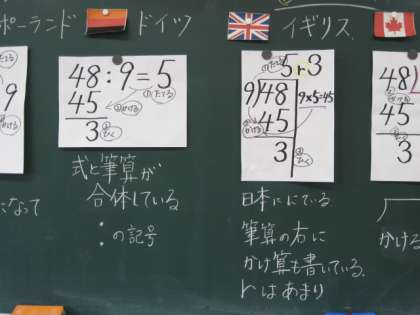 ポーランド
ドイツ
イギリス
9
48:9=5
45
3
①たてる
②かける
③ひく
式と筆算が
合体している
:の記号
になって
5r3
9)48
45
3
9×5=45
①たてる
②かける
③ひく
日本ににている
筆算の右に
かけ算も書いている.
rはあまり
48
45
3
かける